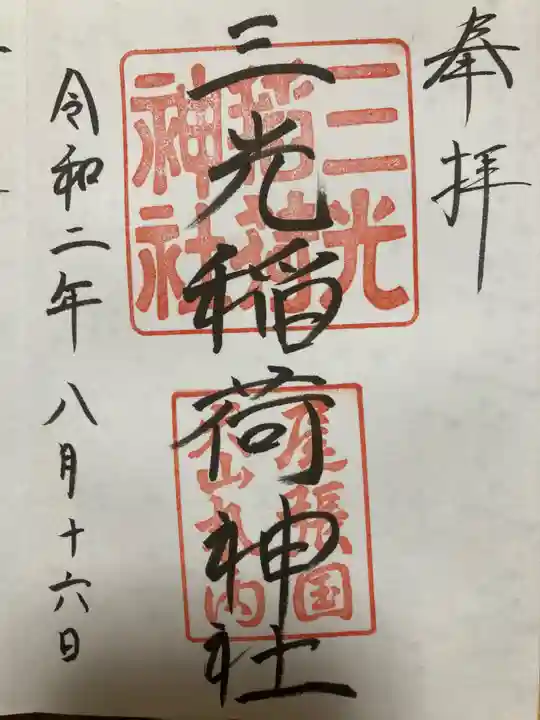 奉拝
三光稲荷神社
令和二年 八月十六日
三光
稲荷
神社
尾張国
犬山丸内